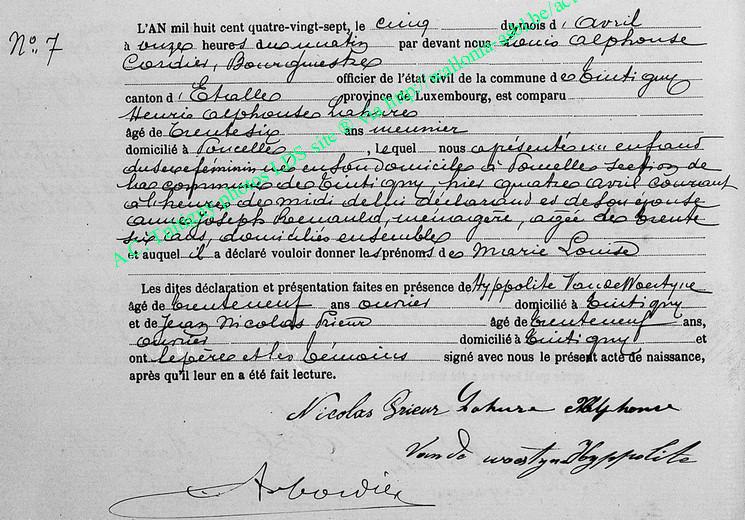 No. 7
L'AN mil huit cent quatre-vingt-sept, le cinq du mois d'Avril
à onze heures du matin par devant nous Louis Alphonse
Cordier, Bourgmestre
officier de l'état civil de la commune de Tintigny
canton d'Etalle province de Luxembourg, est comparu
Henri Alphonse Lahure
âgé de trente six ans meunier
domicilié à Poncelle, lequel nous a présenté un enfant
du sexe féminin né en son domicile à Poncelle section de
la commune de Tintigny, hier quatre avril courant
à l'heure de midi de lui déclarant et de son épouse
Anne Joseph Renauld, ménagère, agée de trente
six ans, domiciliés ensemble
et auquel il a déclaré vouloir donner les prénoms de Marie Louise
Les dites déclaration et présentation faites en présence de Hyppolite Vandewoestyne
âgé de trente neuf ans ouvrier domicilié à Tintigny
et de Jean Nicolas Prieur âgé de trente neuf ans,
ouvrier domicilié à Tintigny et
ont le père et les témoins signé avec nous le présent acte de naissance,
après qu'il leur en a été fait lecture.
Nicolas Prieur Lahure Alphonse
Vande woestyne Hyppolite
A. Cordier
A.C. Tintigny photos LDS site ® via http://wallonia-asbl.be/ac